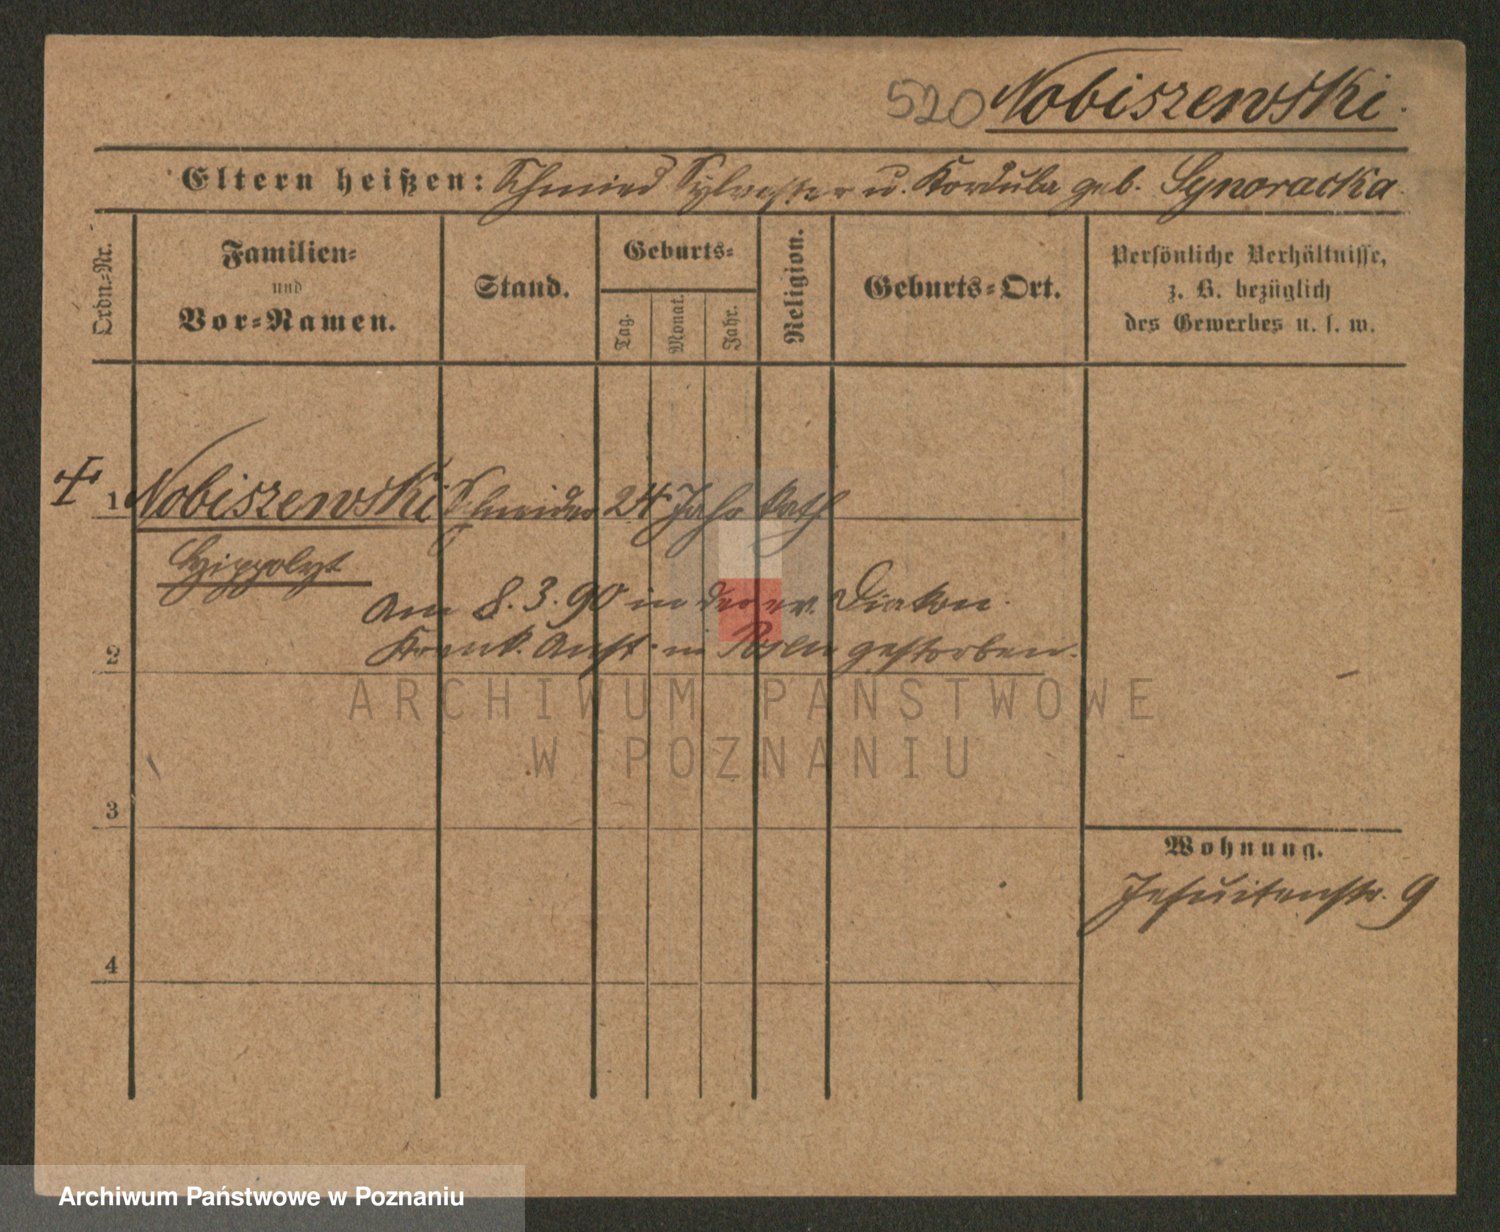 520 Nobiszewski.
Eltern heißen: Schmied Sylvester u. Kordula geb. Synoracka.
Ordn.-Nr.
Familien-
und
Vor-Namen.
Stand.
Geburts-
Tag.
Monat.
Jahr.
Religion.
Geburts-Ort.
Persönliche Verhältnisse,
z. B. bezüglich
des Gewerbes u. s. w.
1 Nobiszewski Schneider 24 Jahr kath
Hippolyt
Am 8.3.90 in der ev. Diakon.
2 Krank. Anst. in Posen gestorben.
ARCHIWUM PAŃSTWOWE
W POZNANIU
3
Wohnung.
Jesuitenstr. 9
4
Archiwum Państwowe w Poznaniu